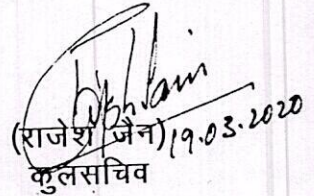 (राजेश जैन) 19.03.2020
कुलसचिव